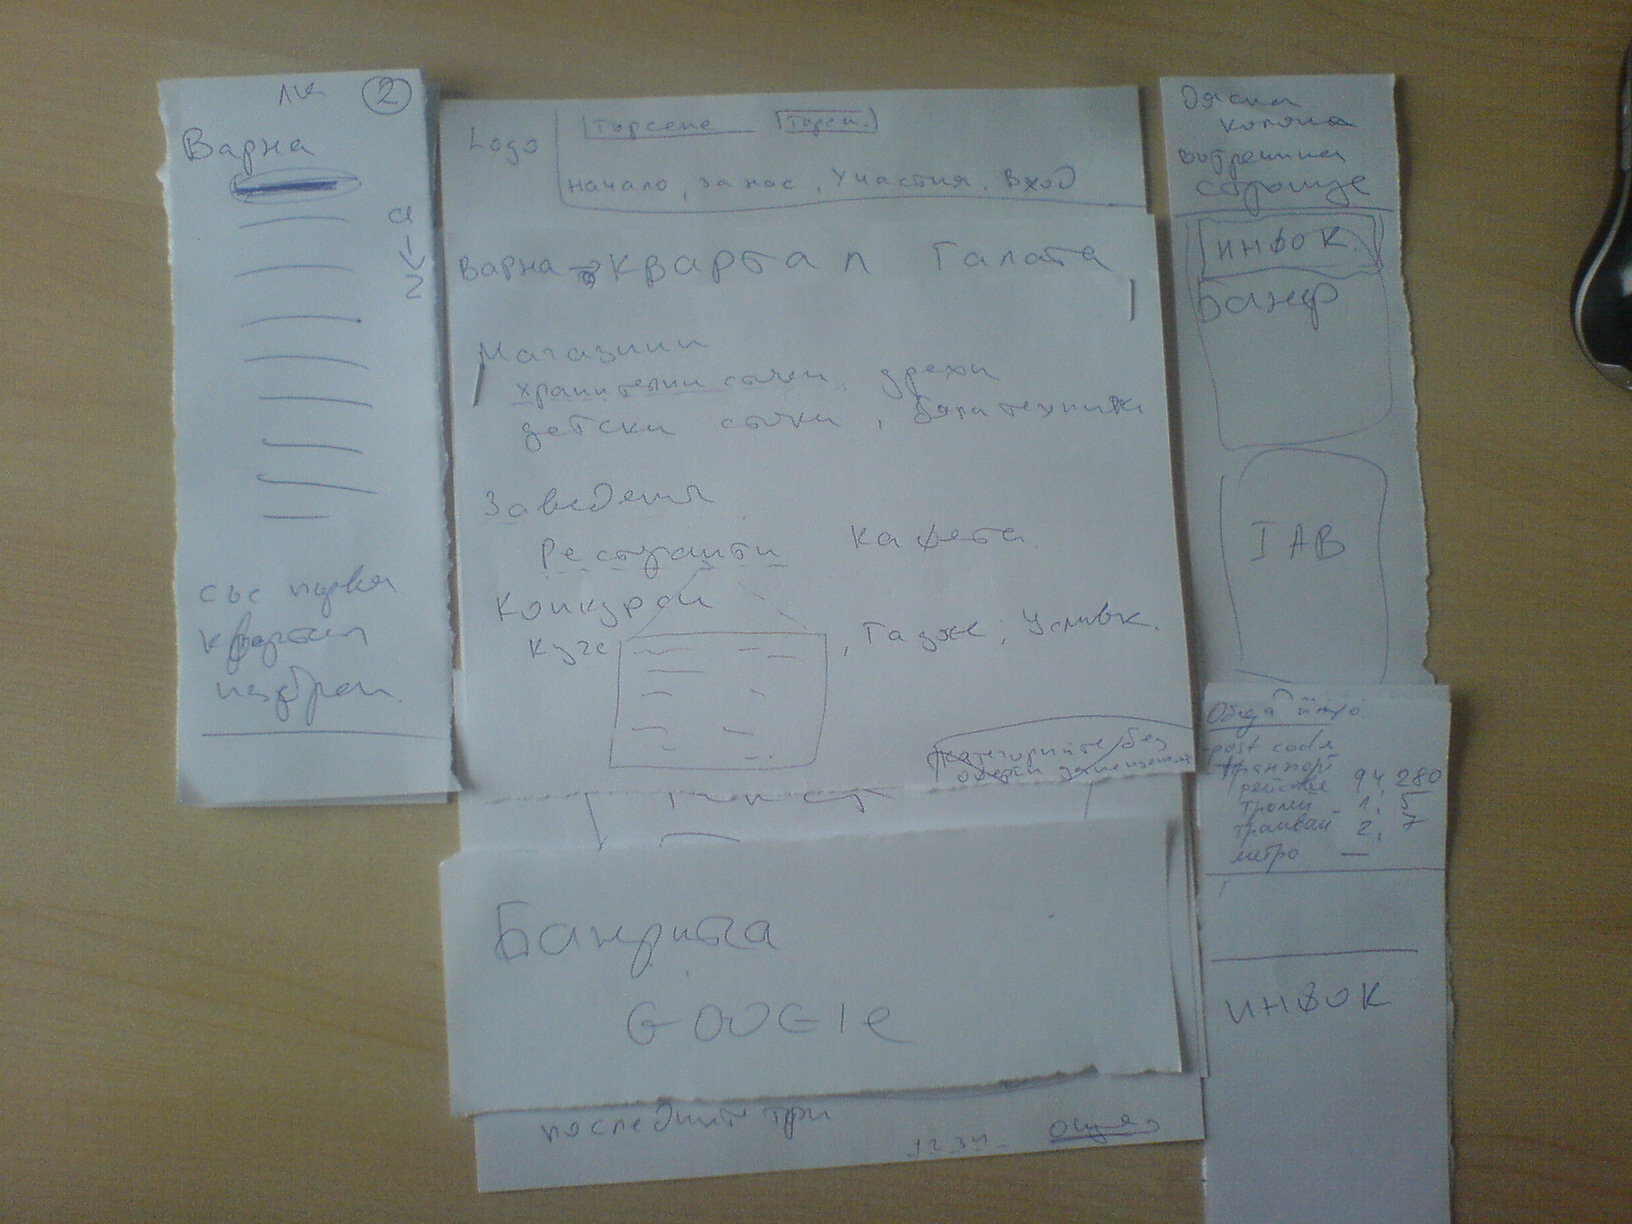 2
Варна
а
2
със първия
квартал
избран
Logo
търсене
Търси.
начало, за нас, Участия, Вход
Варна → квартал Галата
Магазини
хранителни стоки, дрехи
детски стоки, бяла техника
Заведения
Ресторанти Кафета
Конкурси
Куче
, Гадже, Усмивк.
категориите без
Банерита
GOOGle
последните три
1 2 3 4
още
Дясна
колона
вътрешна
страница
инфок.
Банер
IAB
Обща инфо
post code
транспорт
рейсове 94, 280
тролеи - 1, 5
трамваи 2, 7
метро —
инфок